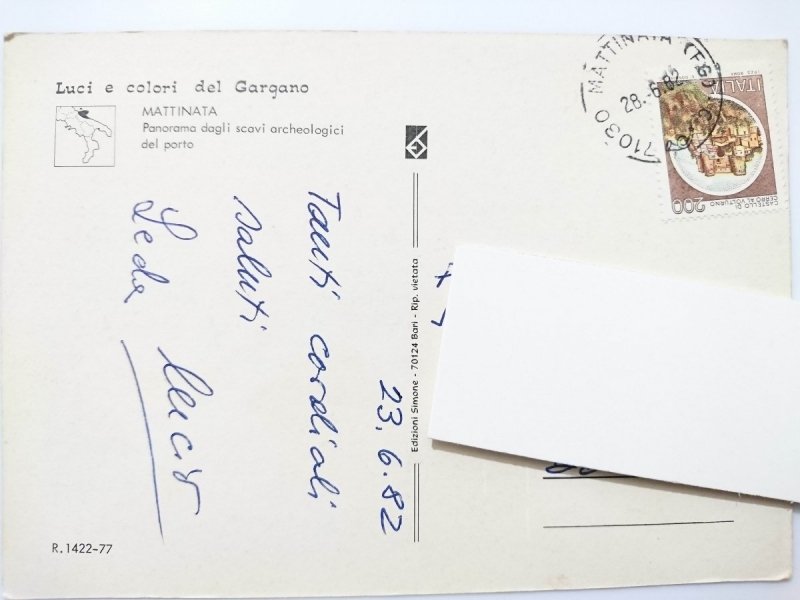 Luci e colori del Gargano
MATTINATA
Panorama dagli scavi archeologici
del porto
Tanti cordiali
saluti
Leda Lucio
23.6.82
Edizioni Simone - 70124 Bari - Rip. vietata
71030 MATTINATA (FG)
28.6.82
ITALIA
CASTELLO DI
CERRO AL VOLTURNO
200
R.1422-77